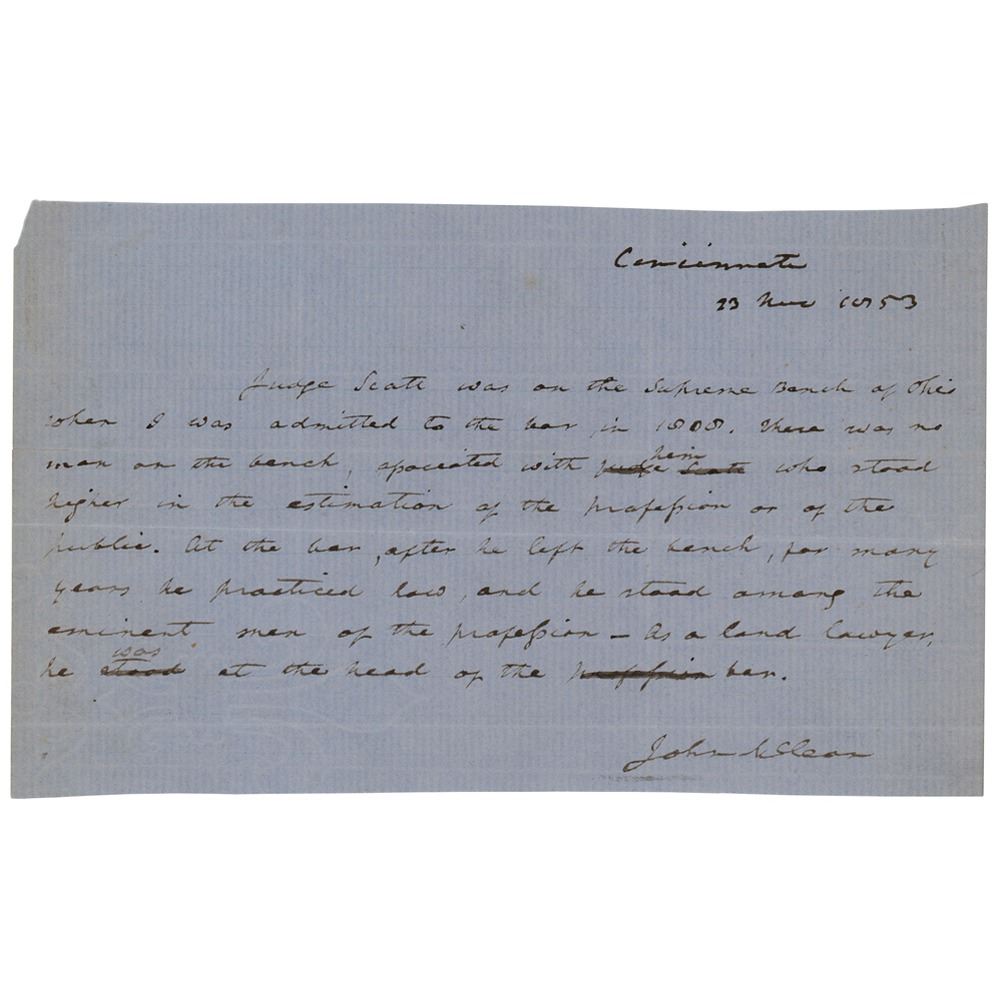 Cincinnati
23 Nov 1853
Judge Scott was on the Supreme Bench of Ohio
when I was admitted to the bar in 1808. There was no
man on the bench, associated with ~~judge Scott~~ him who stood
higher in the estimation of the profession or of the
public. At the bar, after he left the bench, for many
years he practiced law, and he stood among the
eminent men of the profession – As a land lawyer,
he ~~stood~~ was at the head of the ~~profession~~ bar.
John McLean